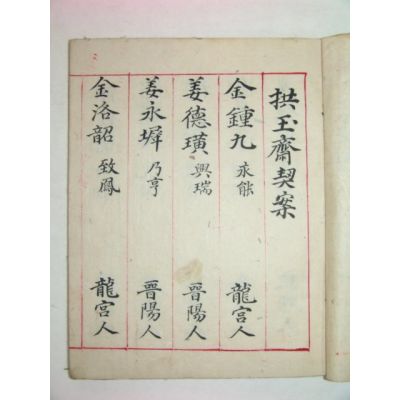 拱玉齋契案
金鍾九 永能 龍宮人
姜德璜 興瑞 晋陽人
姜永墀 乃亨 晋陽人
金洛韶 致鳳 龍宮人